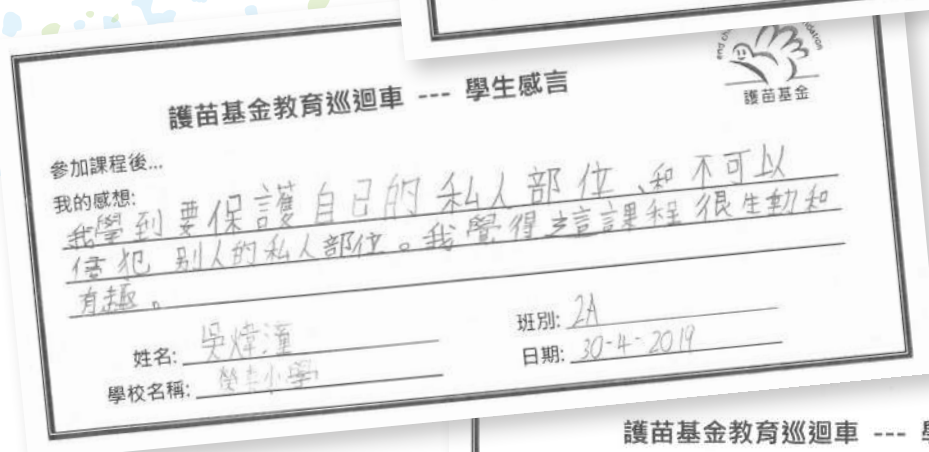 護苗基金
護苗基金教育巡迴車 --- 學生感言
參加課程後...
我的感想:
我學到要保護自己的私人部位、和不可以
侵犯別人的私人部位。我覺得這課程很生動和
有趣。
姓名: 吳煒潼
班別: 2A
學校名稱: 小學
日期: 30-4-2019
護苗基金教育巡迴車 ---